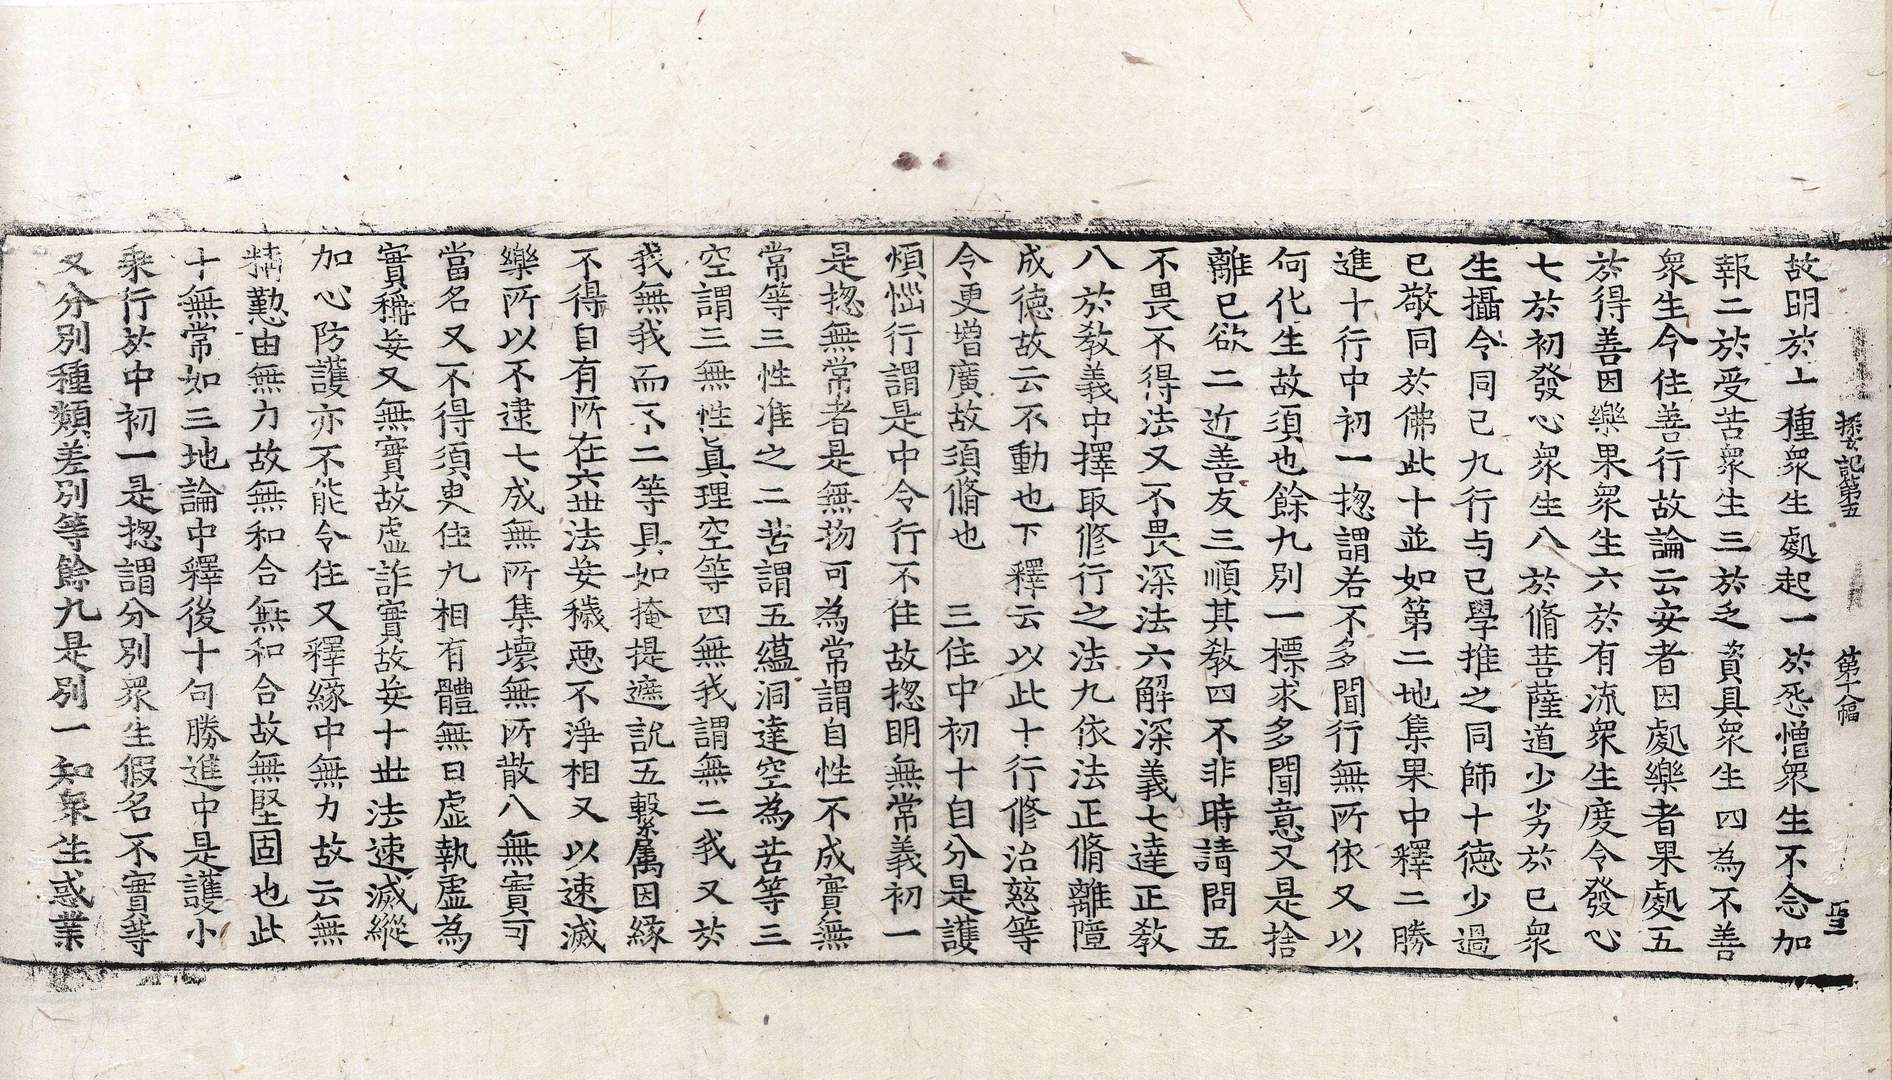 探玄記第五 第十八幅 聖
故明於上種衆生處起一於惡憎衆生不念加
報二於受苦衆生三於乏資具衆生四為不善
衆生令住善行故論云安者因處樂者果處五
於得善因樂果衆生六於有流衆生度令發心
七於初發心衆生八於脩菩薩道少劣於已衆
生攝令同己九行与已學推之同師十德少過
已敬同於佛此十並如第二地集果中釋二勝
進十行中初一揔謂若不多聞行無所依又以
何化生故須也餘九別一標求多聞意又是捨
離已欲二近善友三順其教四不非時請問五
不畏不得法又不畏深法六解深義七達正教
八於教義中擇取修行之法九依法正脩離障
成德故云不動也下釋云以此十行修治慈等
令更增廣故須脩也 三住中初十自分是護
煩惱行謂是中令行不住故揔明無常義初一
是揔無常者是無物可為常謂自性不成實無
常等三性准之二苦謂五蘊洞達空為苦等三
空謂三無性真理空等四無我謂無二我又於
我無我而不二等具如掩提遮說五繫属因緣
不得自有所在六世法妄穢惡不淨相又以速滅
樂所以不逮七成無所集壞無所散八無實可
當名又不得須臾住九相有體無曰虛執虛為
實稱妄又無實故虛詐實故妄十世法速滅縱
加心防護亦不能令住又釋緣中無力故云無
精懃由無力故無和合無和合故無堅固也此
十無常如三地論中釋後十句勝進中是護小
乘行於中初一是揔謂分別眾生假名不實等
又分別種類差別等餘九是別一知衆生惑業